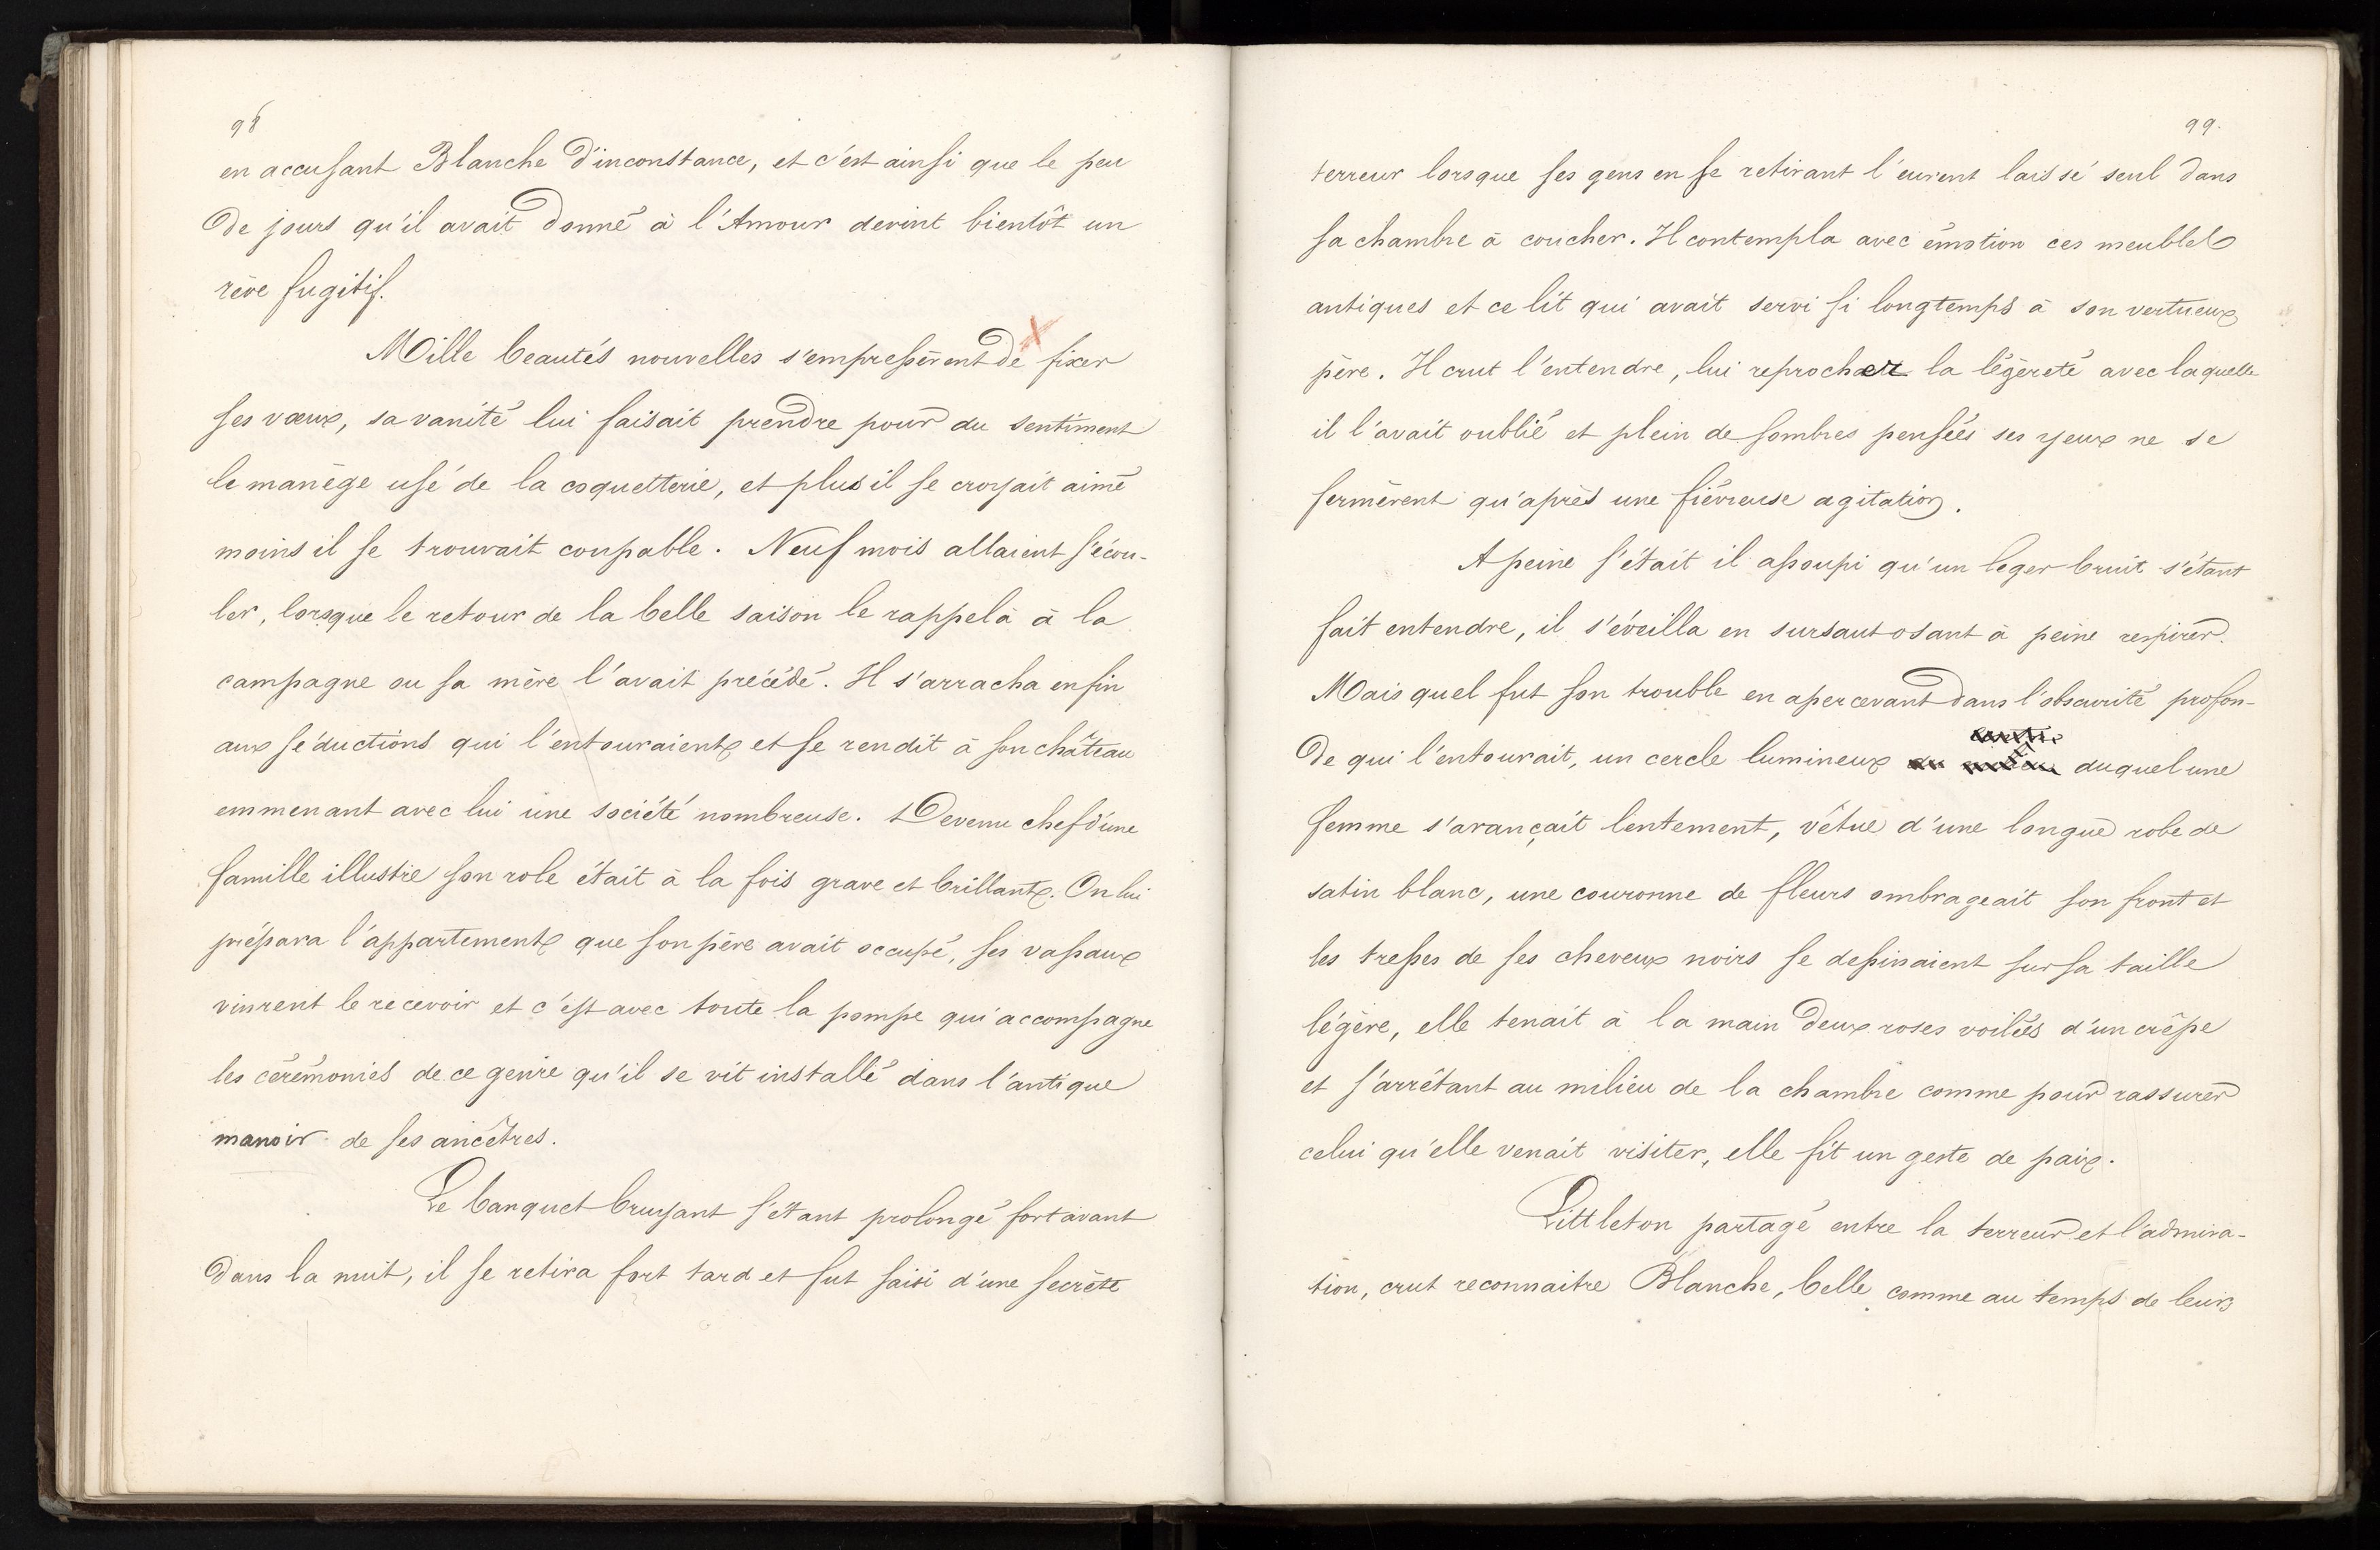 98
en accusant Blanche d'inconstance, et c'est ainsi que le peu
de jours qu'il avait donné à l'Amour devint bientôt un
rêve fugitif.
Mille beautés nouvelles s'empressèrent de fixer
ses vœux, sa vanité lui faisait prendre pour du sentiment
le manège usé de la coquetterie, et plus il se croyait aimé
moins il se trouvait coupable. Neuf mois allaient s'écou-
ler, lorsque le retour de la belle saison le rappela à la
campagne ou sa mère l'avait précédé. Il s'arracha enfin
aux séductions qui l'entouraient et se rendit à son château
emmenant avec lui une société nombreuse. Devenu chef d'une
famille illustre son role était à la fois grave et brillant. On lui
prépara l'appartement que son père avait occupé, ses vassaux
vinrent le recevoir et c'est avec toute la pompe qui accompagne
les cérémonies de ce genre qu'il se vit installé dans l'antique
manoir de ses ancêtres.
Le banquet bruyant s'étant prolongé fort avant
dans la nuit, il se retira fort tard et fut saisi d'une secrète
99.
terreur lorsque ses gens en se retirant l'eurent laissé seul dans
sa chambre à coucher. Il contempla avec émotion ces meubles
antiques et ce lit qui avait servi si longtemps à son vertueux
père. Il crut l'entendre, lui reprocher la légèreté avec laquelle
il l'avait oublié et plein de sombres pensées ses yeux ne se
fermèrent qu'après une fiévreuse agitation.
A peine s'était il assoupi qu'un leger bruit s'étant
fait entendre, il s'éveilla en sursaut osant à peine respirer.
Mais quel fut son trouble en apercevant dans l'obscurité profon-
de qui l'entourait, un cercle lumineux au milieu duquel une
femme s'avançait lentement, vêtue d'une longue robe de
satin blanc, une couronne de fleurs ombrageait son front et
les tresses de ses cheveux noirs se dessinaient sur sa taille
légère, elle tenait à la main deux roses voilées d'un crêpe
et s'arrêtant au milieu de la chambre comme pour rassurer
celui qu'elle venait visiter, elle fit un geste de paix.
Littleton partagé entre la terreur et l'admira-
tion, crut reconnaitre Blanche, belle comme au temps de leurs